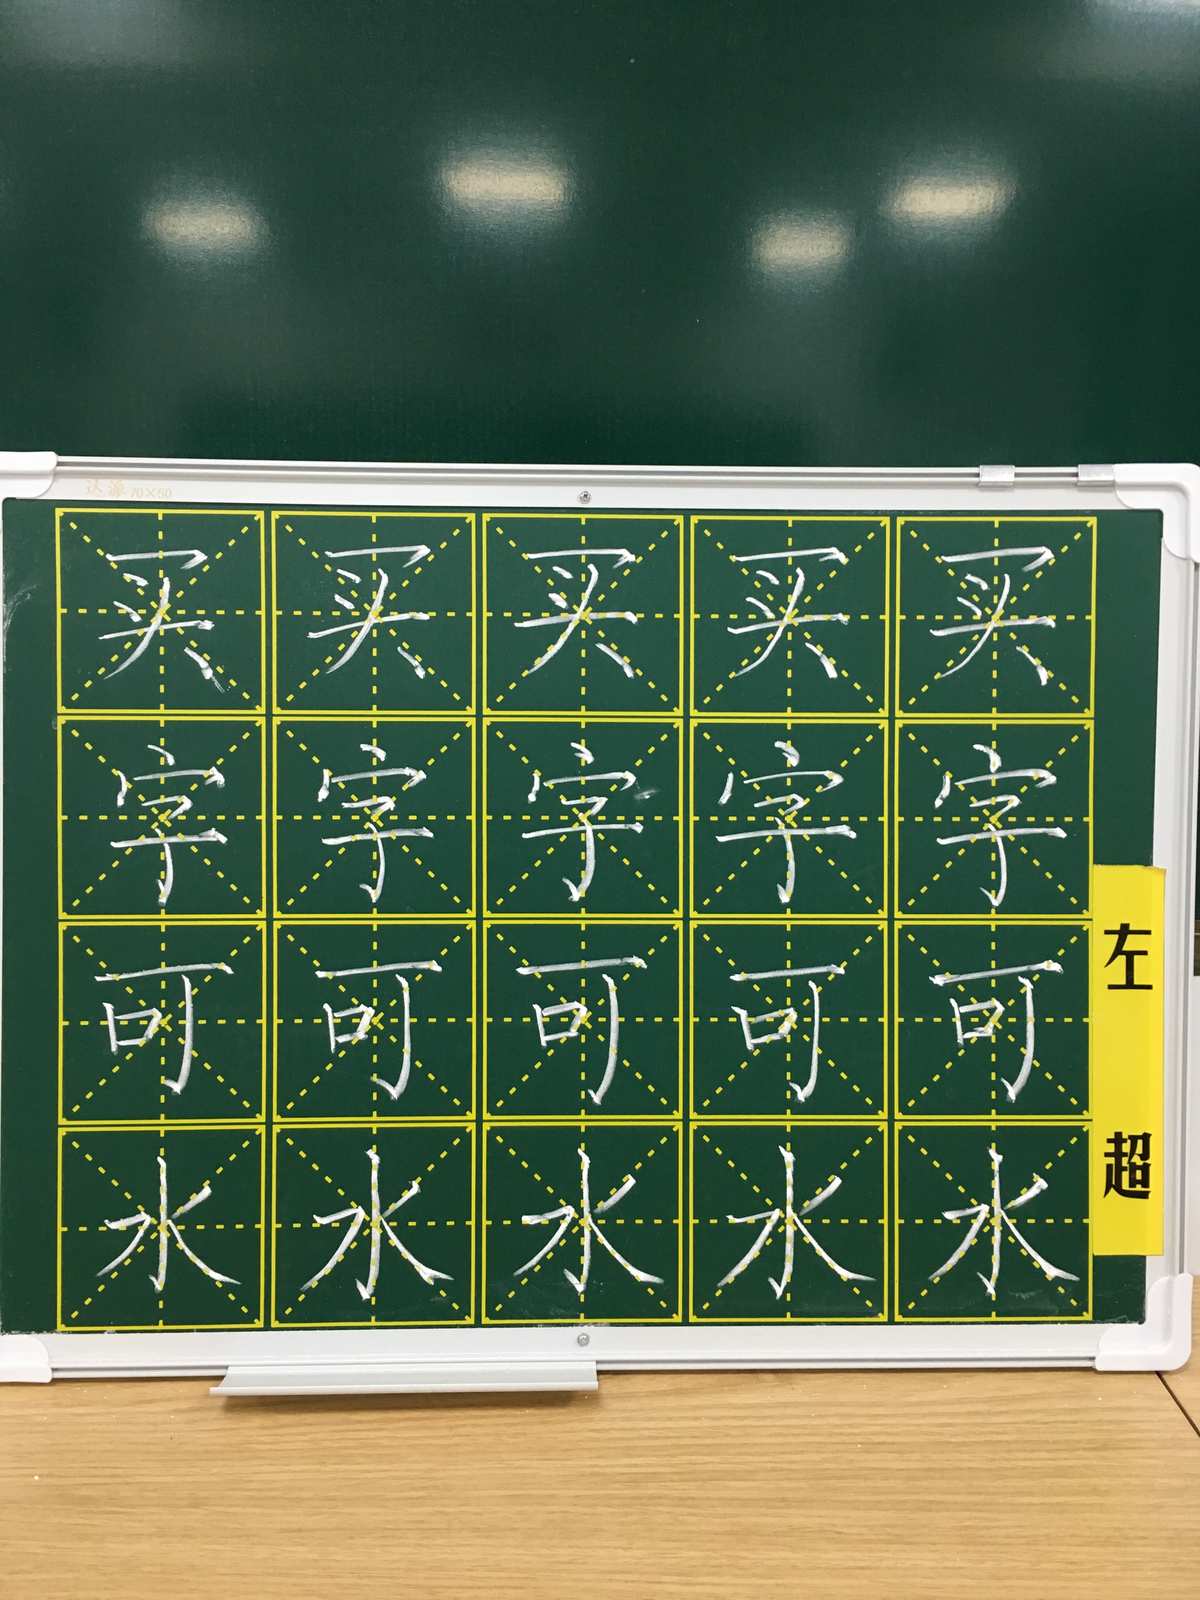 达源 70×50
买买买买买
字字字字字
可可可可可
水水水水水
左超